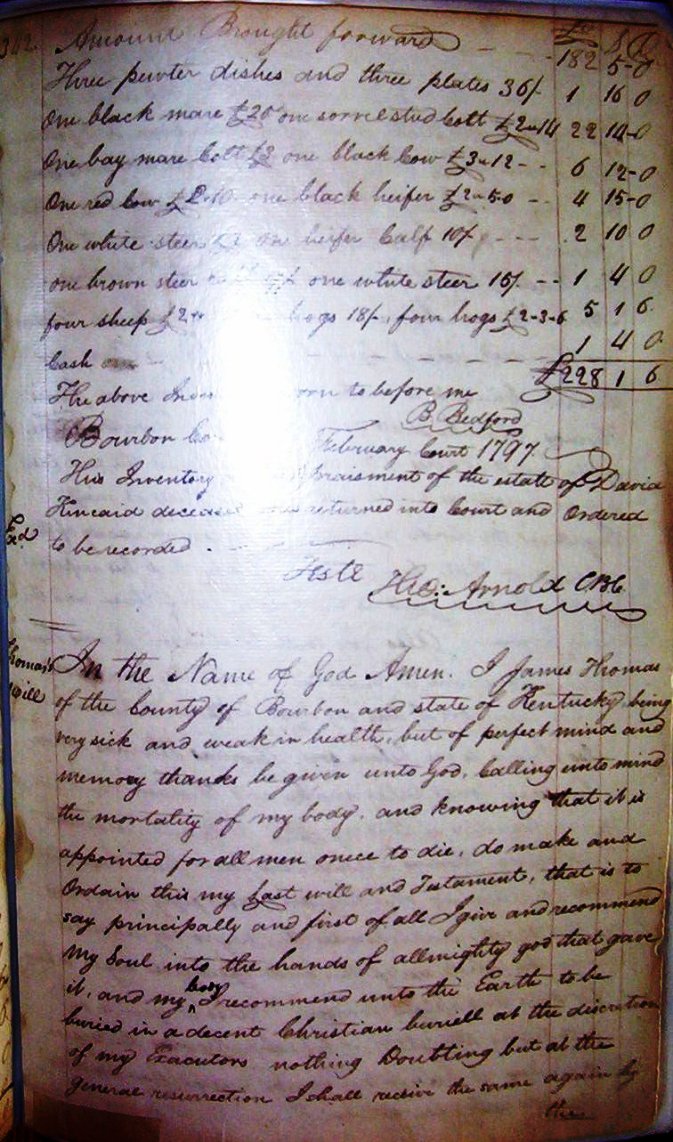 342 Amount Brought forward 182 5-0
Three pewter dishes and three plates 36/ 1 16 0
One black mare £20 one sorrel stud Colt £2-14 22 14-0
One bay mare Colt £3 one black Cow £3-12 6 12-0
One red Cow £2-10 one black heifer £2-5-0 4 15-0
One white steer one heifer Calf 10/ 2 10 0
one brown steer one white steer 15/ 1 4 0
four sheep £2 hogs 18/ four hogs £2-3-6 5 1 6
Cash 1 4 0
£228 1 6
The above to before me
B. Bedford
Bourbon February Court 1797
This Inventory of the estate of David
Kincaid deceased returned into Court and Ordered
to be recorded.
Exd
Teste Tho: Arnold CBC
Thomas's
will
In the Name of God Amen. I James Thomas
of the County of Bourbon and state of Kentucky being
very sick and weak in health, but of perfect mind and
memory thanks be given unto God, Calling unto mind
the mortality of my body, and knowing that it is
appointed for all men onece to die, do make and
Ordain this my Last will and Testament, that is to
say principally and first of all I give and recommend
My Soul into the hands of allmighty god that gave
it, and my body I recommend unto the Earth to be
buried in a decent Christian buriell at the discretion
of my Executors nothing Doubting but at the
general resurrection I shall recsive the same again by
the